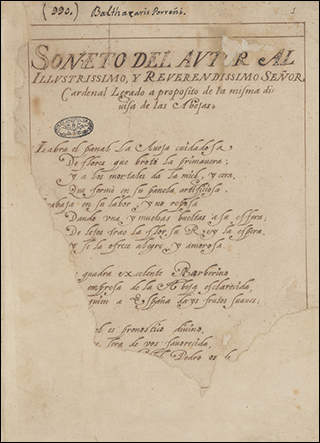 (990.) Balthazaris Porreñi. 1
SONETO DEL AVTOR AL
ILLVSTRISSIMO, Y REVERENDISSIMO SEÑOR
Cardenal Legado a proposito de la misma di
uisa de las Abejas.
Labra el panal la Aueja cuidadosa
De flores que brotò la primauera;
y a los mortales da la miel, y cera,
Que formò en su panela artificiosa.
abaja en su labor, y no reposa
Dando vna, y muchas bueltas a su esfera,
De lejos trae la flor, su Rey la espera,
y se la ofrece alegre, y amorosa.
quadra excelente Barberino
empresa de la Abeja esclarecida,
quien a España days frutos suaues,
el es pronostico diuino,
de vos fauorecida,
Pedro os